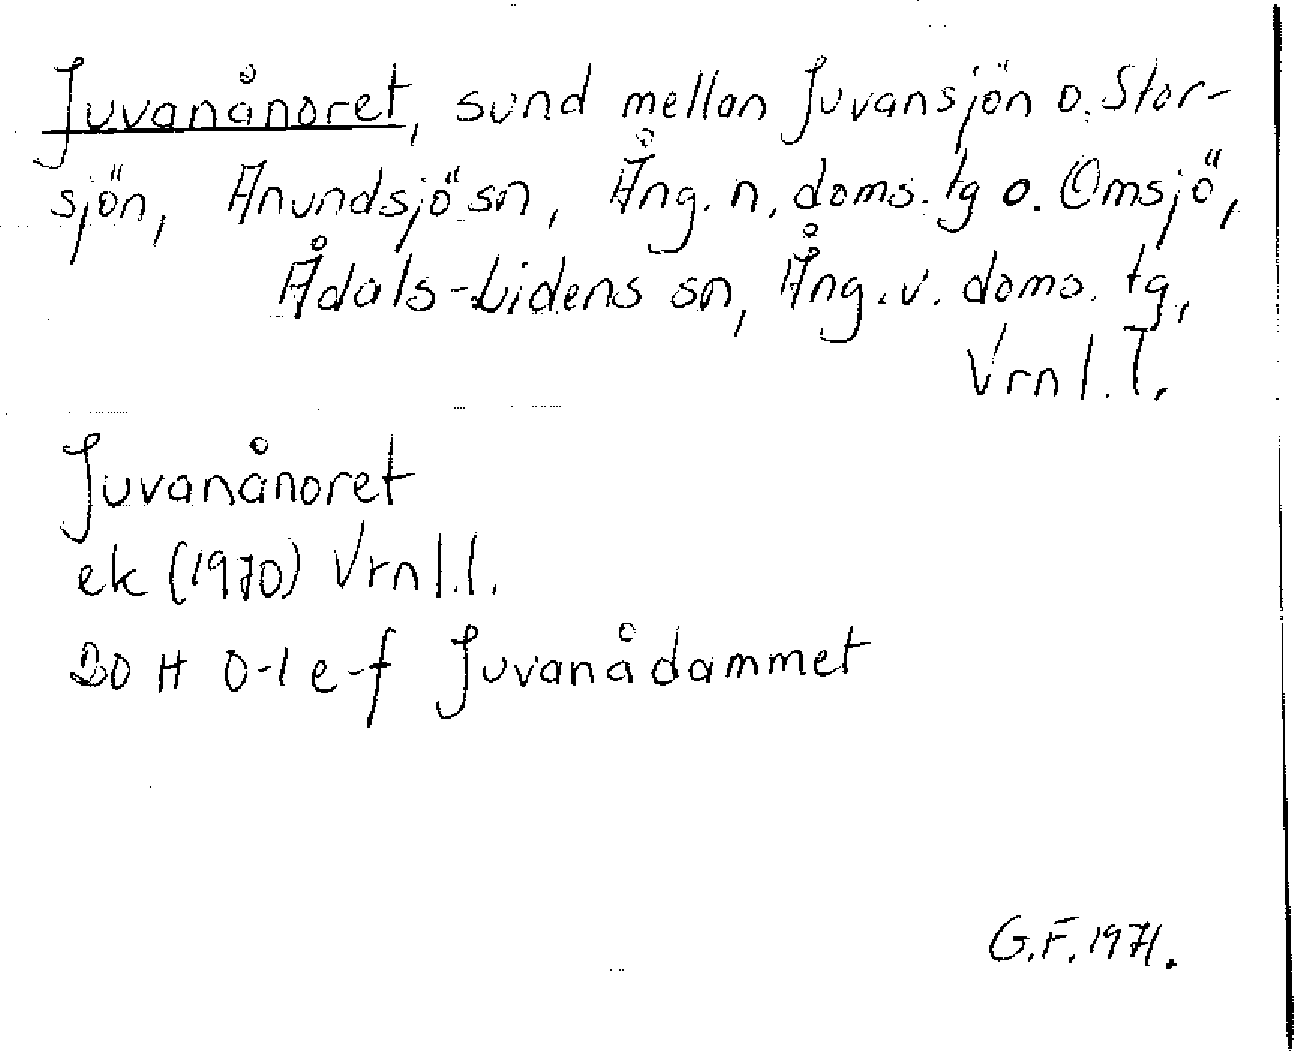 Juvanånoret, sund mellan Juvansjön o. Stor-
sjön, Anundsjö sn, Ång. n. doms. tg o. Omsjö,
Ådals-Lidens sn, Ång. v. doms. tg,
Vrnl. l.
Juvanånoret
ek (1970) Vrnl. l.
20 H 0-1 e-f Juvanådammet
G.F. 1971.